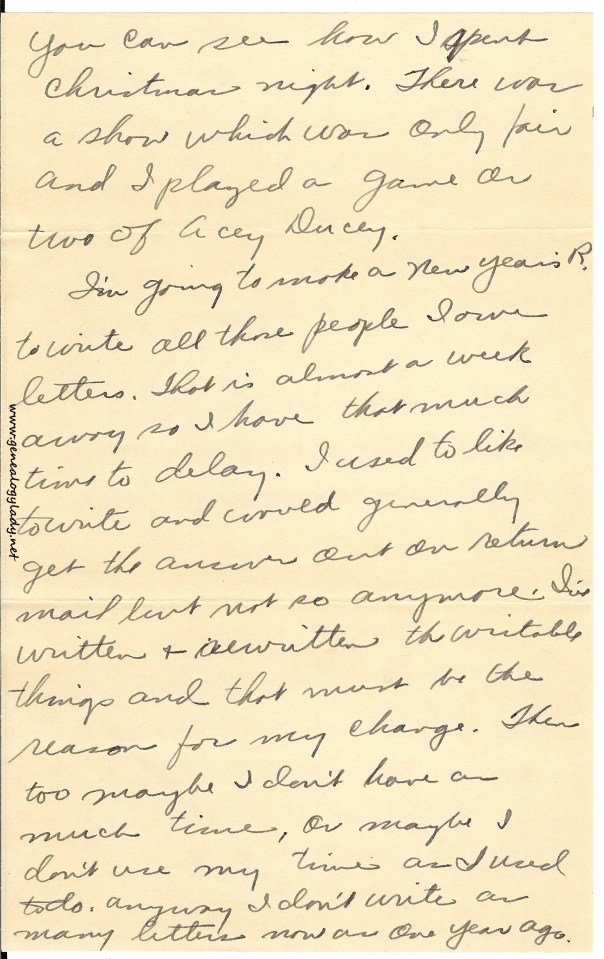 You can see how I spent
Christmas night. There was
a show which was only fair
and I played a game or
two of Acey Ducey.
I'm going to make a New Years R.
to write all those people I owe
letters. That is almost a week
away so I have that much
time to delay. I used to like
to write and would generally
get the answer out on return
mail but not so anymore. I've
written + rewritten the writable
things and that must be the
reason for my change. Then
too maybe I don't have as
much time, or maybe I
don't use my time as I used
to do. Anyway I don't write as
many letters now as one year ago.
www.genealogylady.net